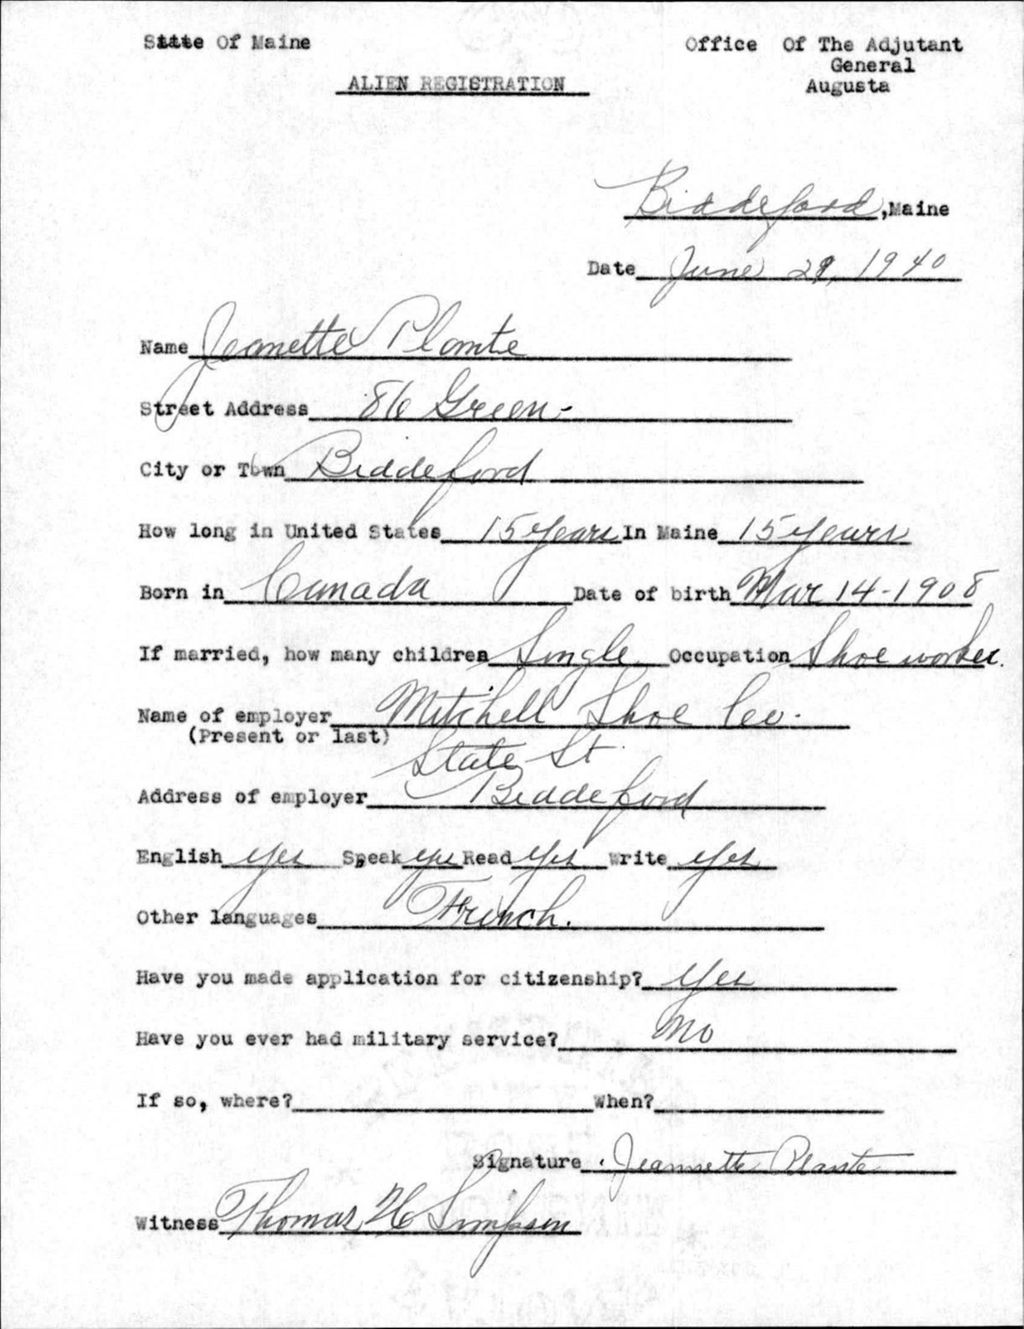 State Of Maine
Office Of The Adjutant
General
Augusta
ALIEN REGISTRATION
Biddeford, Maine
Date June 29, 1940
Name Jeanette Plante
Street Address 86 Green-
City or Town Biddeford
How long in United States 15 years In Maine 15 years
Born in Canada Date of birth Mar 14-1908
If married, how many children Single Occupation Shoe worker.
Name of employer Mitchell Shoe Co.
(Present or last)
State St
Address of employer Biddeford
English yes Speak yes Read yes Write yes
Other languages French.
Have you made application for citizenship? yes
Have you ever had military service? No
If so, where? When?
Signature. Jeannette Plante
Witness Thomas H Simpson